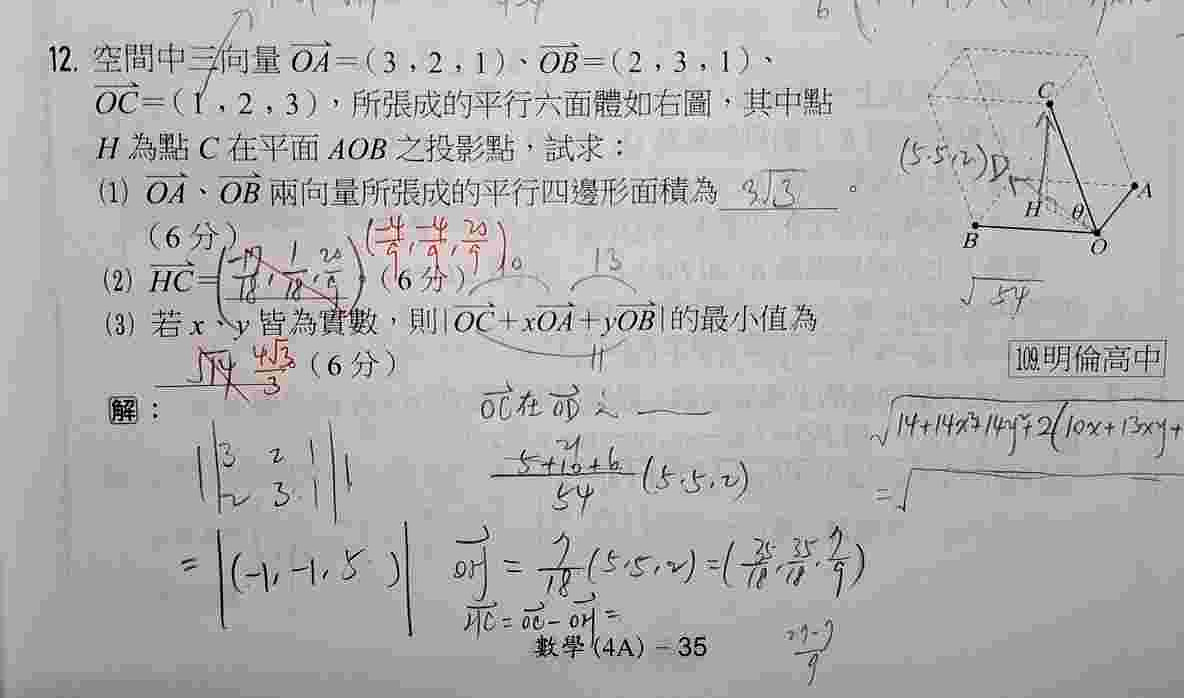 12. 空間中三向量 OA=(3,2,1)、OB=(2,3,1)、
OC=(1,2,3),所張成的平行六面體如右圖,其中點
H 為點 C 在平面 AOB 之投影點,試求:
(1) OA、OB 兩向量所張成的平行四邊形面積為 3√3 。
(6 分)
(2) HC=(-17/18, 1/18, 20/9) (6 分) (-4/9, -4/9, 20/9)
10 13
(3) 若 x、y 皆為實數,則|OC+xOA+yOB|的最小值為
11
√14 4√3/3 (6 分)
C
(5,5,2) D
A
H θ
B O
√54
109.明倫高中
解:
|3 2 1|
|2 3 1|
= |(-1,-1,5)|
OC在 OD 之
21
5+10+6/54 (5,5,2)
OH = 7/18 (5,5,2) = (35/18, 35/18, 7/9)
HC = OC - OH =
27-7/9
√14+14x²+14y²+2(10x+13xy+
=√
數學(4A)-35